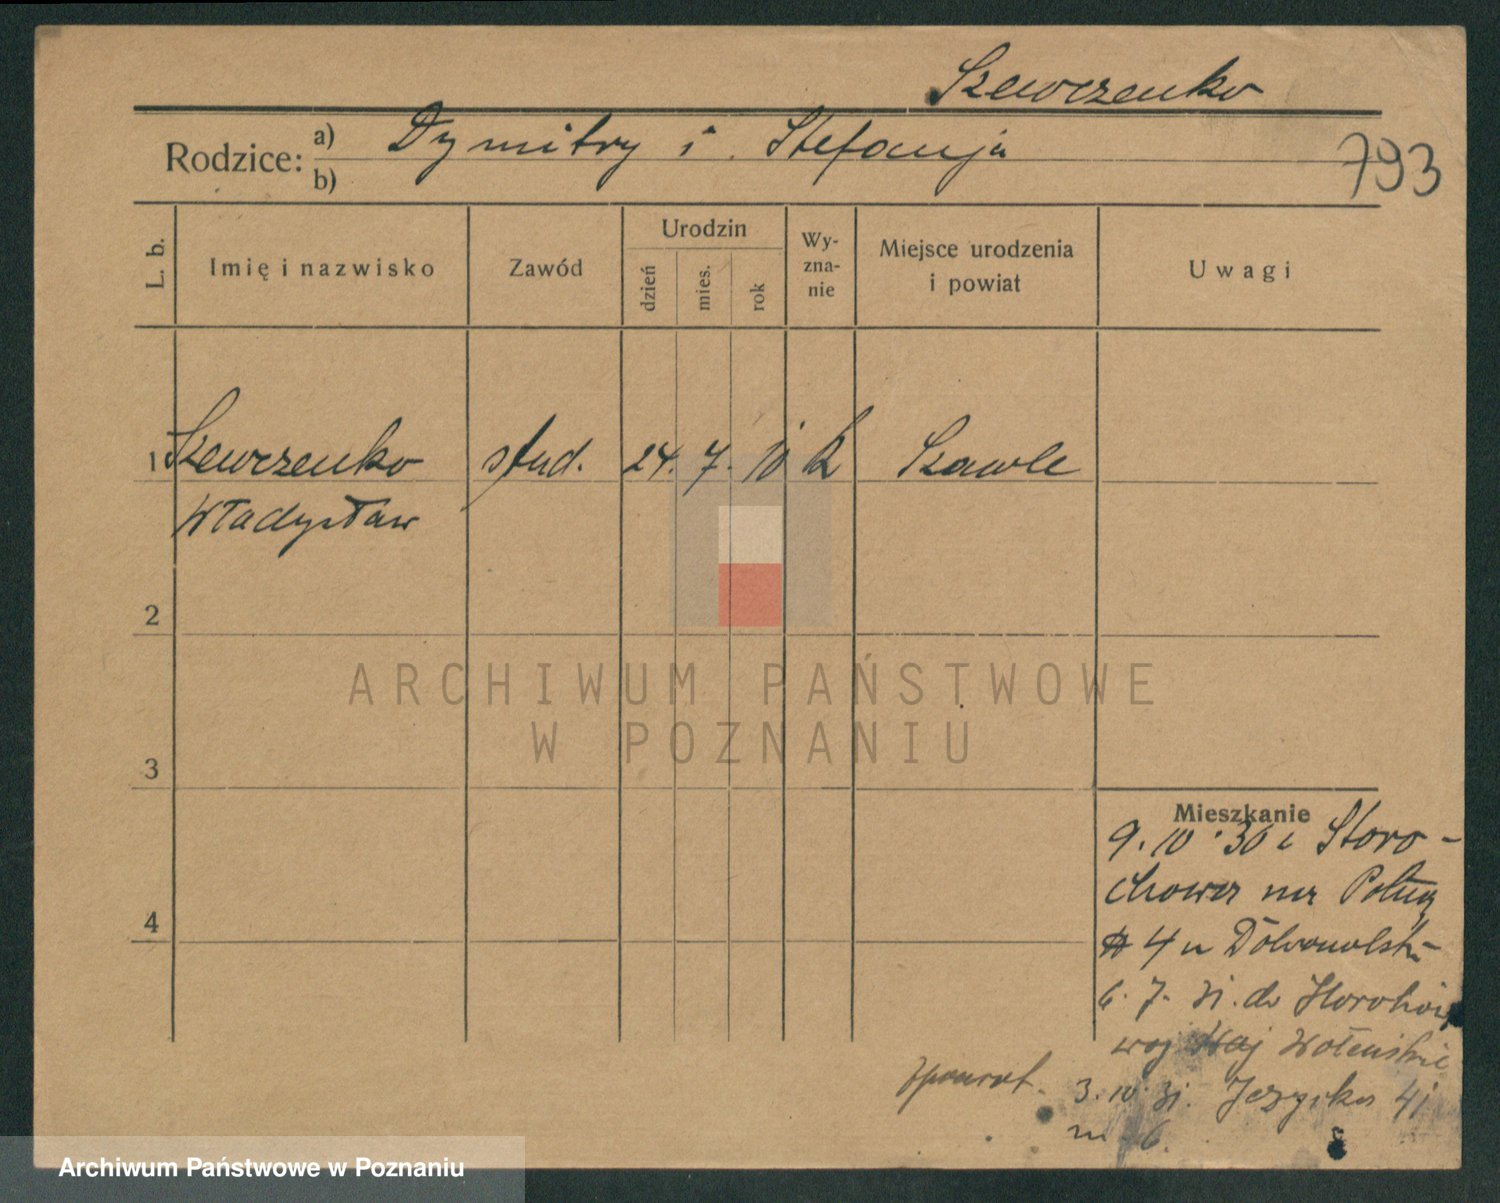 Szewczenko
Rodzice: a) Dymitry i Stefanja
b)
793
L. b.
Imię i nazwisko
Zawód
Urodzin
dzień
mies.
rok
Wy-
zna-
nie
Miejsce urodzenia
i powiat
Uwagi
1 Szewczenko stud. 24. 7. 10 k Szawle
Władysław
2
3
4
ARCHIWUM PAŃSTWOWE
W POZNANIU
Mieszkanie
9. 10. 30 z Storo-
4 u
6. 7. 31. do Horochów
woj
3. 10. 31. 41
m 6.
Archiwum Państwowe w Poznaniu